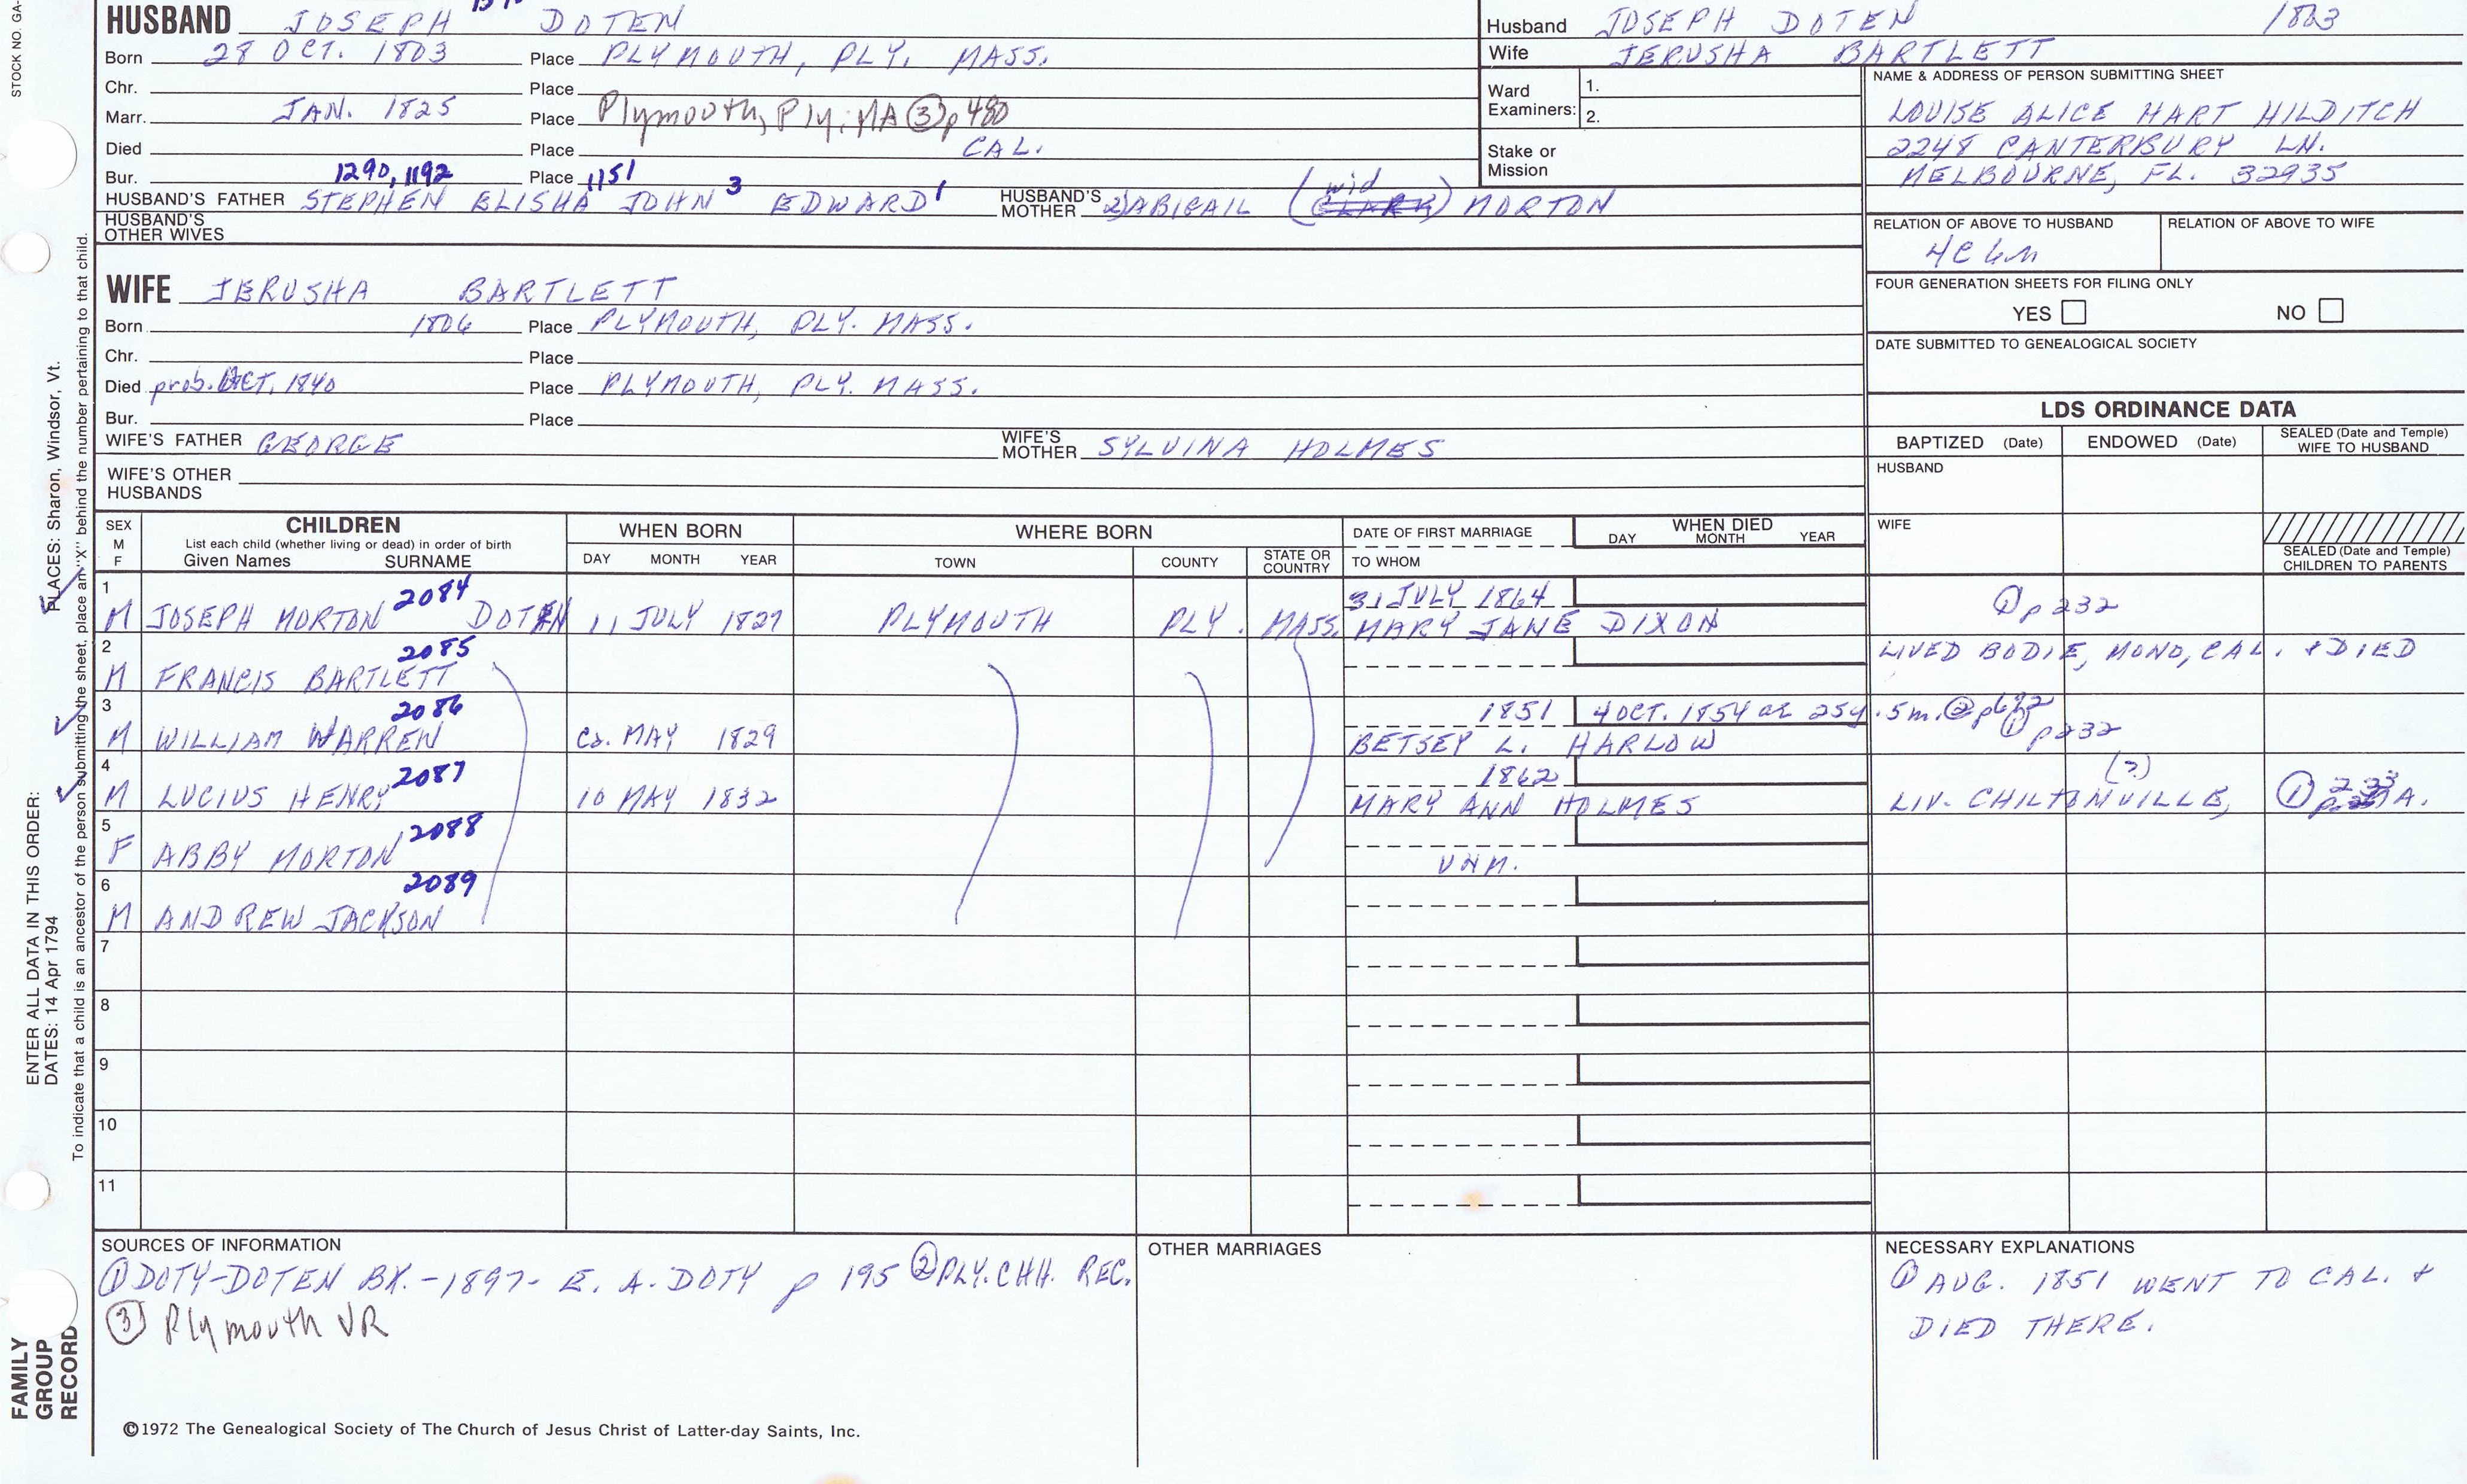 HUSBAND JOSEPH DOTEN
Born 28 OCT. 1803 Place PLYMOUTH, PLY. MASS.
Chr. Place
Marr. JAN. 1825 Place Plymouth, Ply. MA ③ p 480
Died Place CAL.
Bur. 1290, 1192 Place 1151
HUSBAND'S FATHER STEPHEN ELISHA JOHN 3 EDWARD 1 HUSBAND'S MOTHER 2) ABIGAIL (wid CLARK) MORTON
HUSBAND'S OTHER WIVES
Husband JOSEPH DOTEN 1803
Wife JERUSHA BARTLETT
Ward Examiners: 1.
2.
Stake or Mission
NAME & ADDRESS OF PERSON SUBMITTING SHEET
LOUISE ALICE HART HILDITCH
2248 CANTERBURY LN.
MELBOURNE, FL. 32935
RELATION OF ABOVE TO HUSBAND RELATION OF ABOVE TO WIFE
FOUR GENERATION SHEETS FOR FILING ONLY
YES NO
DATE SUBMITTED TO GENEALOGICAL SOCIETY
WIFE JERUSHA BARTLETT
Born 1806 Place PLYMOUTH, PLY. MASS.
Chr. Place
Died prob. OCT. 1840 Place PLYMOUTH, PLY. MASS.
Bur. Place
WIFE'S FATHER GEORGE WIFE'S MOTHER SYLVINA HOLMES
WIFE'S OTHER HUSBANDS
LDS ORDINANCE DATA
BAPTIZED (Date) ENDOWED (Date) SEALED (Date and Temple) WIFE TO HUSBAND
HUSBAND
WIFE
SEALED (Date and Temple) CHILDREN TO PARENTS
SEX M F CHILDREN List each child (whether living or dead) in order of birth Given Names SURNAME
WHEN BORN DAY MONTH YEAR
WHERE BORN TOWN COUNTY STATE OR COUNTRY
DATE OF FIRST MARRIAGE TO WHOM
WHEN DIED DAY MONTH YEAR
1 M JOSEPH MORTON 2084 DOTEN 11 JULY 1827 PLYMOUTH PLY. MASS. 31 JULY 1864 MARY JANE DIXON ① p 232
2 M FRANCIS BARTLETT 2085 LIVED BODIE, MONO, CAL. & DIED
3 M WILLIAM WARREN 2086 ca. MAY 1829 1851 BETSEY L. HARLOW 4 OCT. 1854 ae 25y. 5m. ② ① p 232
4 M LUCIUS HENRY 2087 10 MAY 1832 1862 MARY ANN HOLMES LIV. CHILTONVILLE, (?) ① 233 A.
5 F ABBY MORTON 2088 UNM.
6 M ANDREW JACKSON 2089
7
8
9
10
11
SOURCES OF INFORMATION
① DOTY-DOTEN BK. - 1897 - E. A. DOTY p 195 ② PLY. CHH. REC.
③ Plymouth VR
OTHER MARRIAGES
NECESSARY EXPLANATIONS
① AUG. 1851 WENT TO CAL. &
DIED THERE.
©1972 The Genealogical Society of The Church of Jesus Christ of Latter-day Saints, Inc.
STOCK NO. GA-
ENTER ALL DATA IN THIS ORDER:
DATES: 14 Apr 1794 PLACES: Sharon, Windsor, Vt.
To indicate that a child is an ancestor of the person submitting the sheet, place an "X" behind the number pertaining to that child.
FAMILY
GROUP
RECORD